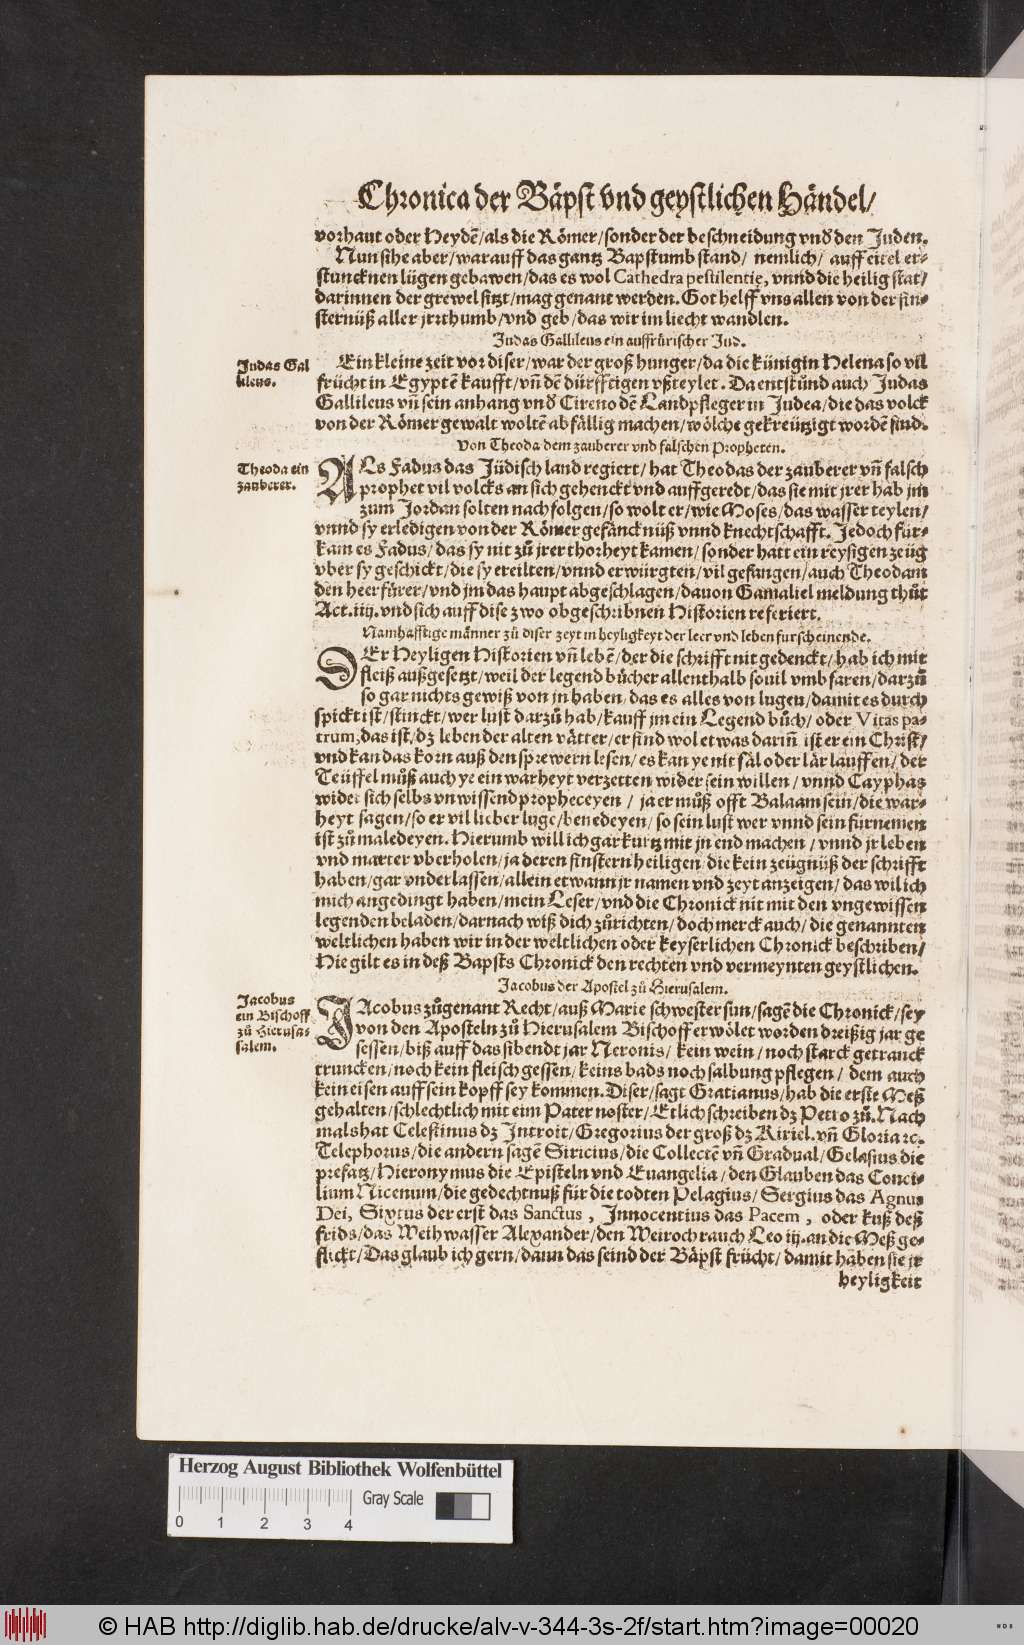 Chronica der Bäpst vnd geystlichen Händel/
vorhaut oder Heydē/als die Römer/sonder der beschneidung vnd̕ den Juden.
Nun sihe aber/warauff das gantz Bapstumb stand/ nemlich/ auff eitel er-
stuncknen lügen gebawen/das es wol Cathedra pestilentię, vnnd die heilig stat/
darinnen der grewel sitzt/mag genant werden. Got helff vns allen von der fin-
sternüß aller jrrthumb/vnd geb/das wir im liecht wandlen.
Judas Gallileus ein auffrürischer Jud.
Judas Gal
lileus.
Ein kleine zeit vor diser/war der groß hunger/da die künigin Helena so vil
frücht in Egyptē kaufft/vn̄ dē dürfftigen vßteylet. Da entstůnd auch Judas
Gallileus vn̄ sein anhang vnd̕ Cireno dē Landpfleger in Judea/die das volck
von der Römer gewalt woltē abfällig machen/wölche gekreützigt wordē sind.
Von Theoda dem zauberer vnd falschen Propheten.
Theoda ein
zauberer.
ALs Fadus das Jüdisch land regiert/hat Theodas der zauberer vn̄ falsch
prophet vil volcks an sich gehenckt vnd auffgeredt/das sie mit jrer hab jm
zum Jordan solten nachfolgen/so wolt er/wie Moses/das wasser teylen/
vnnd sy erledigen von der Römer gefäncknüß vnnd knechtschafft. Jedoch für-
kam es Fadus/das sy nit zů jrer thorheyt kamen/sonder hatt ein reysigen zeüg
vber sy geschickt/die sy ereilten/vnnd erwürgten/vil gefangen/auch Theodam
den heerfürer/vnd jm das haupt abgeschlagen/dauon Gamaliel meldung thůt
Act.iiij.vnd sich auff dise zwo obgeschribnen Historien referiert.
Namhafftige männer zů diser zeyt in heyligkeyt der leer vnd leben fürscheinende.
DEr Heyligen Historien vn̄ lebē/der die schrifft nit gedenckt/hab ich mit
fleiß außgesetzt/weil der legend bůcher allenthalb souil vmbfaren/darzů
so gar nichts gewiß von jn haben/das es alles von lugen/damit es durch
spickt ist/stinckt/wer lust darzů hab/kauff jm ein Legend bůch/oder Vitas pa-
trum,das ist/dz leben der alten vätter/er find wol etwas darin̄ ist er ein Christ/
vnd kan das korn auß den sprewern lesen/es kan ye nit fäl oder lär lauffen/der
Teüffel můß auch ye ein warheyt verzetten wider sein willen/vnnd Cayphas
wider sich selbs vnwissend propheceyen/ja er můß offt Balaam sein/die war-
heyt sagen/so er vil lieber luge/benedeyen/so sein lust wer vnnd sein fürnemen
ist zů maledeyen. Hierumb will ich gar kurtz mit jn end machen/vnnd jr leben
vnd marter vberholen/ja deren finstern heiligen/die kein zeügnüß der schrifft
haben/gar vnderlassen/allein etwann jr namen vnd zeyt anzeigen/das wil ich
mich angedingt haben/mein Leser/vnd die Chronick nit mit den vngewissen
legenden beladen/darnach wiß dich zůrichten/doch merck auch/die genannten
weltlichen haben wir in der weltlichen oder keyserlichen Chronick beschriben/
Hie gilt es in deß Bapsts Chronick den rechten vnd vermeynten geystlichen.
Jacobus der Apostel zů Hierusalem.
Jacobus
ein Bischoff
zů Hierusa-
salem.
JAcobus zůgenant Recht/auß Marie schwester sun/sagē die Chronick/sey
von den Aposteln zů Hierusalem Bischoff erwölet worden dreißig jar ge
sessen/biß auff das sibendt jar Neronis/kein wein/noch starck getranck
truncken/noch kein fleisch gessen/keins bads noch salbung pflegen/dem auch
kein eisen auff sein kopff sey kommen. Diser/sagt Gratianus/hab die erste Meß
gehalten/schlechtlich mit eim Pater noster/Etlich schreiben dz Petro zů. Nach
mals hat Celestinus dz Introit/Gregorius der groß dz Kiriel. vn̄ Gloria ꝛc.
Telephorus/die andern sagē Siricius/die Collectē vn̄ Gradual/Gelasius die
prefatz/Hieronymus die Episteln vnd Euangelia/den Glauben das Conci-
lium Nicenum/die gedechtnuß für die todten Pelagius/Sergius das Agnus
Dei, Sixtus der erst das Sanctus, Innocentius das Pacem, oder kuß deß
frids/das Weihwasser Alexander/den Weirochrauch Leo iij.an die Meß ge-
flickt/Das glaub ich gern/dann das seind der Bäpst frücht/damit haben sie jr
heyligkeit
Herzog August Bibliothek Wolfenbüttel
Gray Scale
0 1 2 3 4
© HAB http://diglib.hab.de/drucke/alv-v-344-3s-2f/start.htm?image=00020